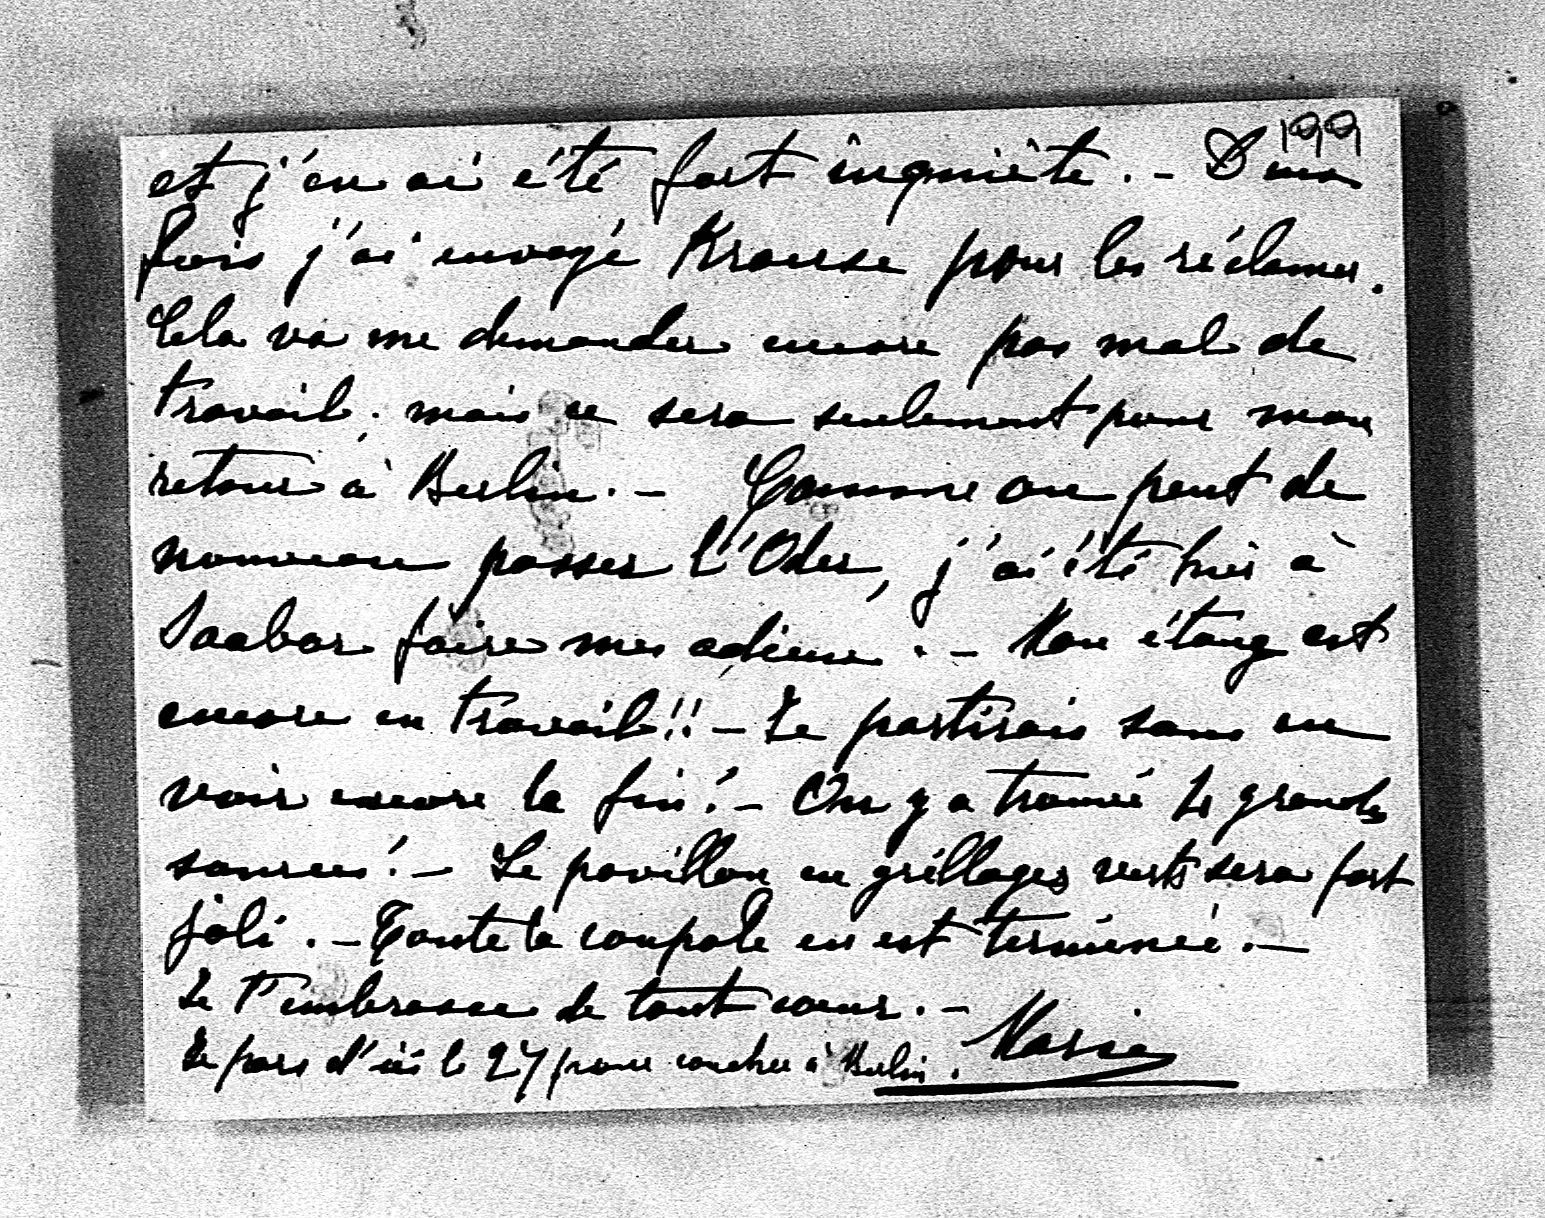 199
et j'en ai été fort inquiète. – Deux
fois j'ai envoyé Krause pour les réclamer.
Cela va me demander encore pas mal de
travail, mais ce sera seulement pour mon
retour à Berlin. – Comme on peut de
nouveau passer l'Oder, j'ai été hier à
Saabor faire mes adieux. – Mon étang est
encore en travail!! – Je partirais sans en
voir encore la fin! – On y a trouvé 4 grands
sources! – Le pavillon en grillages verts sera fort
joli. – Toute la coupole en est terminée. –
Je t'embrasse de tout coeur. –
Marie
Je pars d'ici le 27 pour coucher à Berlin.